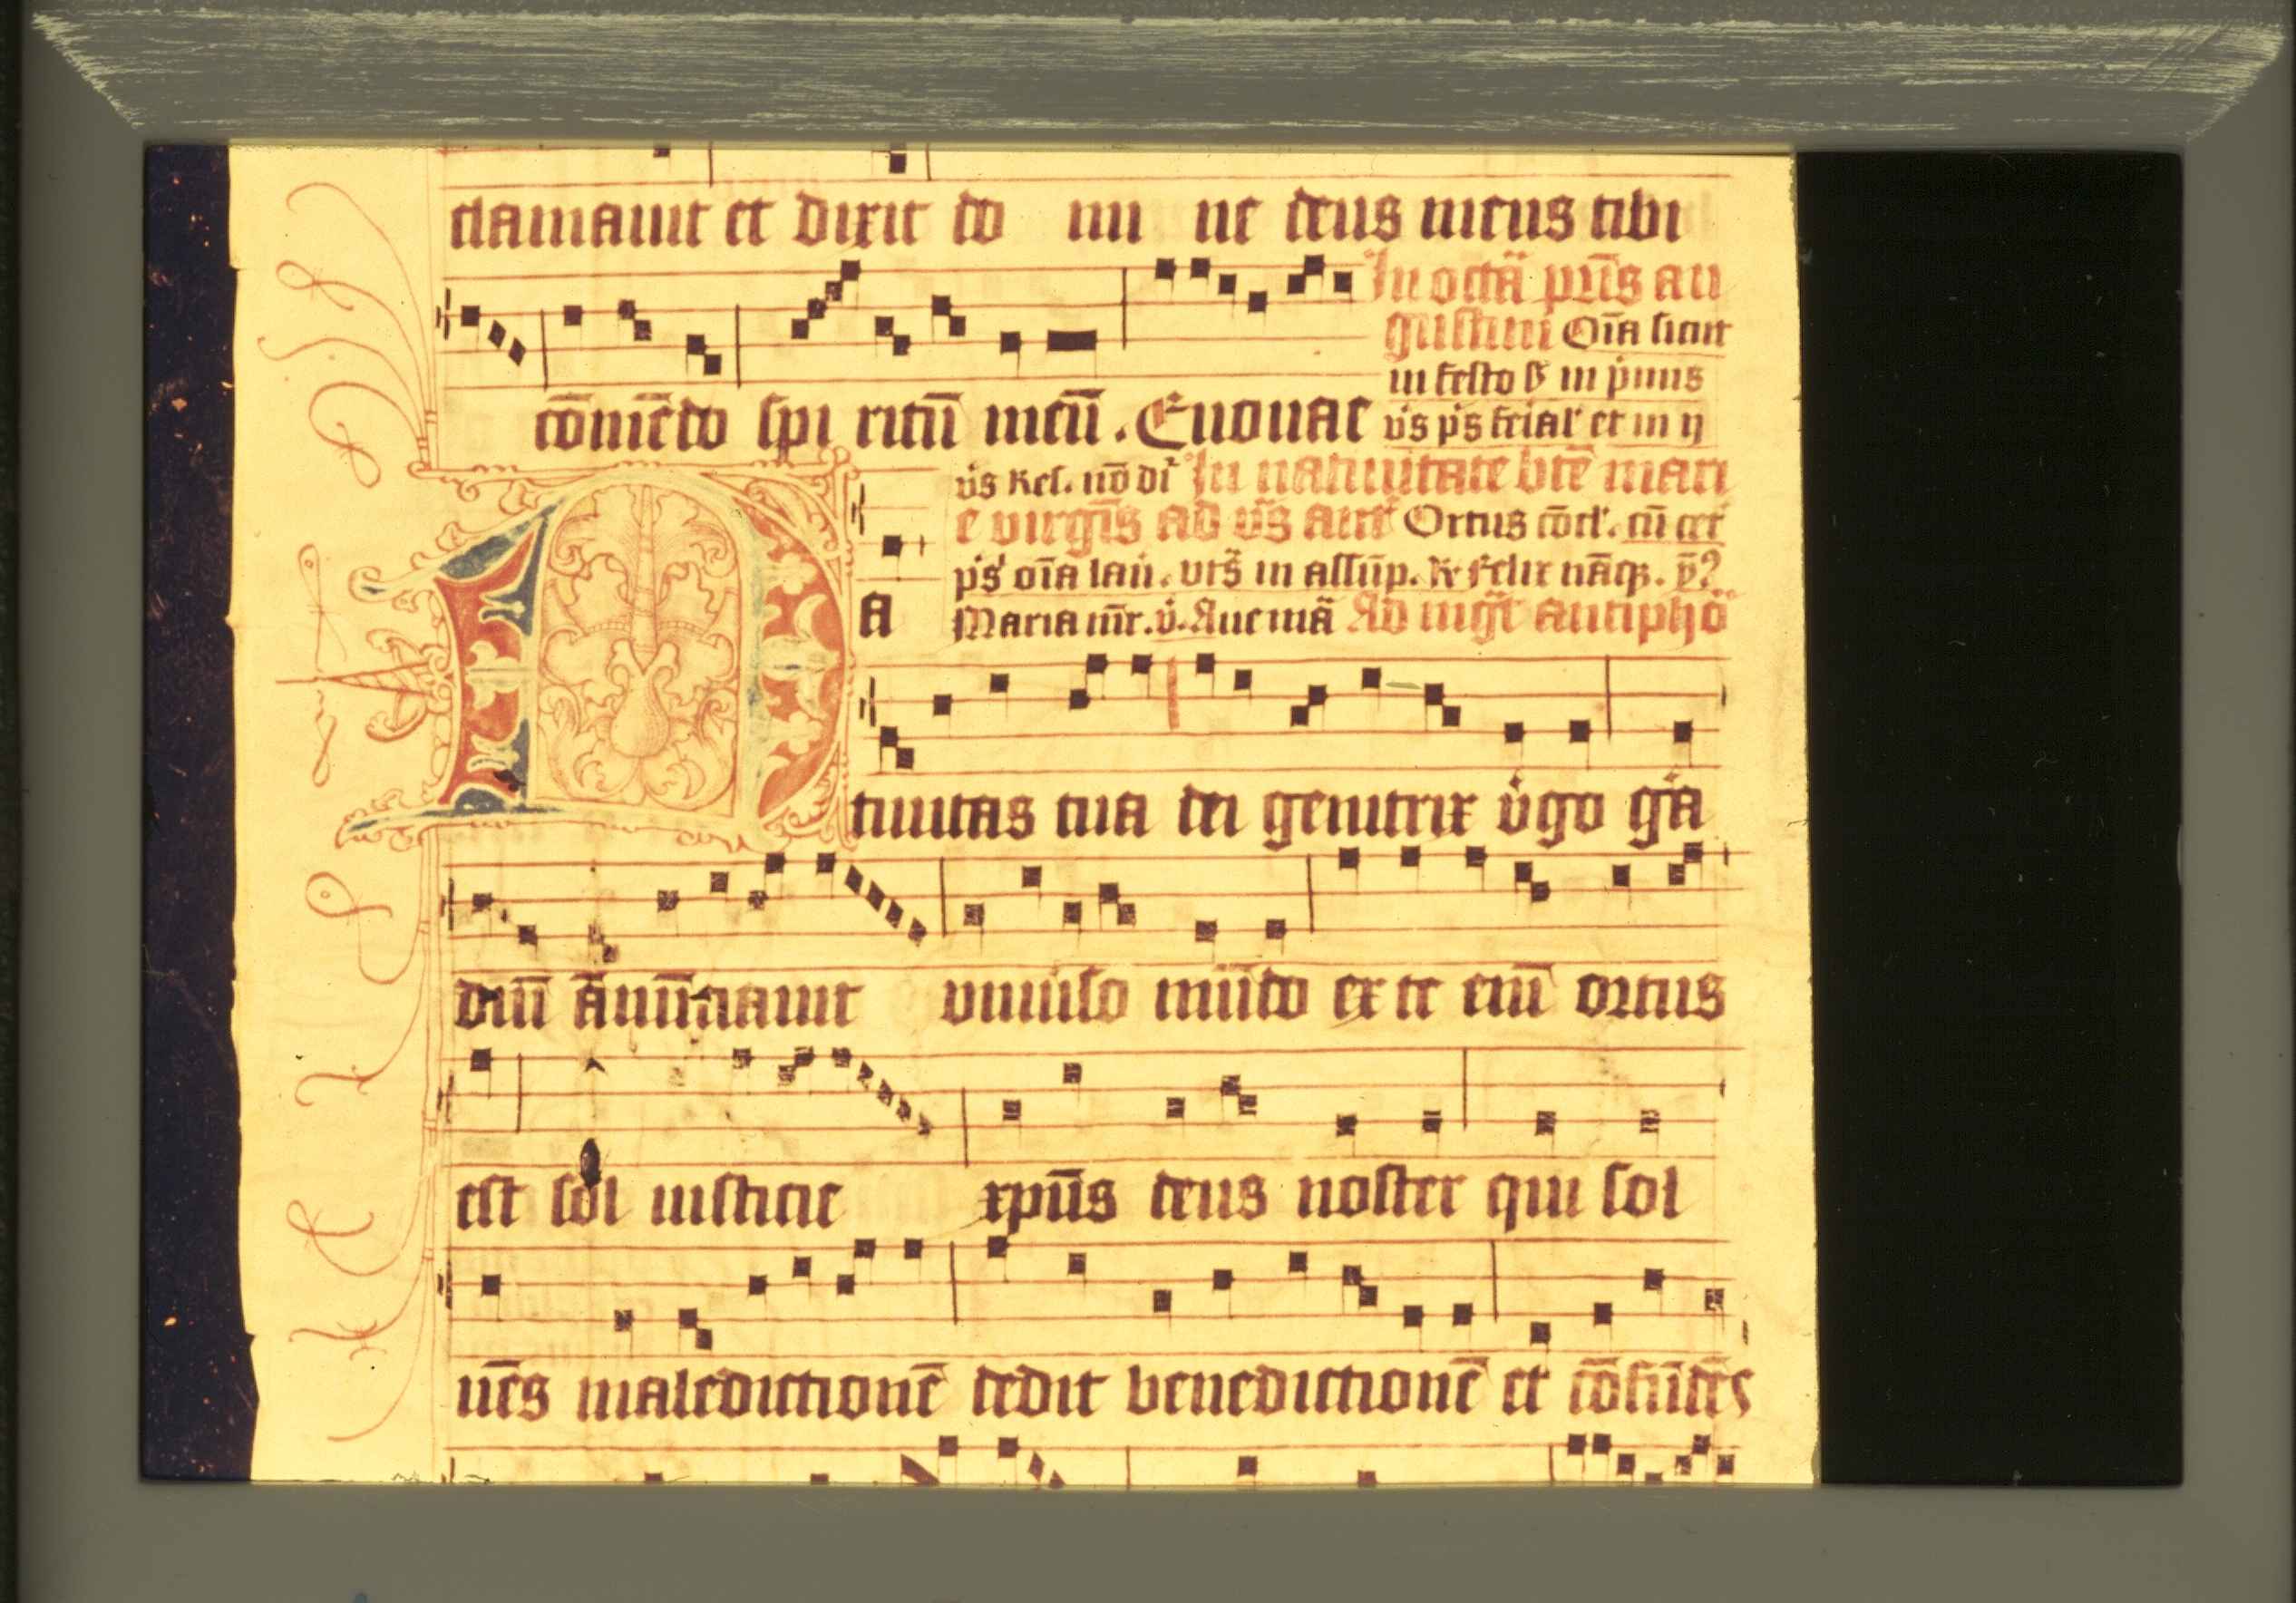 clamauit et dixit do mi ne deus meus tibi
In octā pr̄is au
gustini Oīa sicut
in festo sꝫ in pimis
cōmēdo spi ritū meū. Euouae v̇s ṗs ferial' et in ij
v̇s Res. nō dr̄ In natiuitate btē mari
e virgīs ad v̄s ant̄ Ortus cōcl'. cū cet̄
ps' oīa lau. vts̄ in assūp. R̸ felix nāqꝫ. ꝟ?
A Maria mr̄. v̇. Aue mā Ad mgt̄ antiphō
N tiuitas tua dei genitrix v̇go ga
diū ānūtiauit vniuiso mūdo ex te eīn ortus
est sol iusticie xpūs deus noster qui sol
uēs maledictionē dedit benedictionē et cōfūdēs